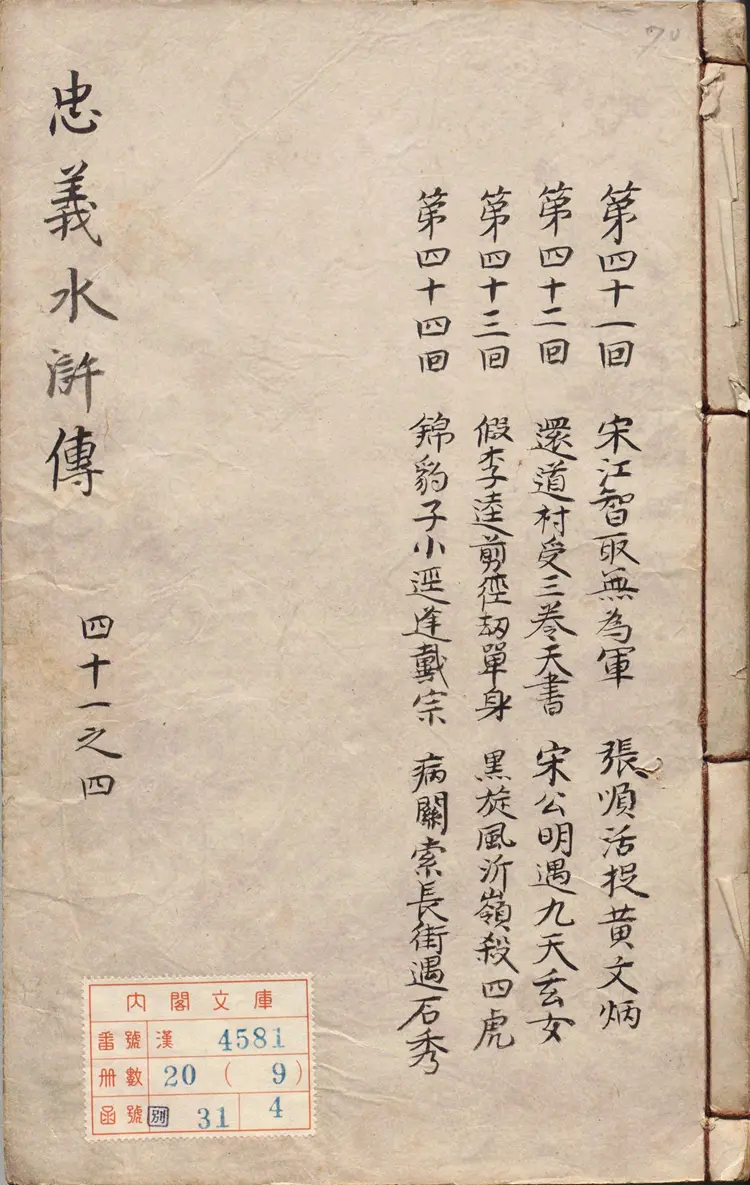 70
第四十一回 宋江智取無為軍 張順活捉黃文炳
第四十二回 還道村受三卷天書 宋公明遇九天玄女
第四十三回 假李逵剪徑劫單身 黑旋風沂嶺殺四虎
第四十四回 錦豹子小逕逢戴宗 病關索長街遇石秀
忠義水滸傳 四十一之四
內閣文庫
番號 漢 4581
冊數 20 ( 9 )
函號 別 31 4